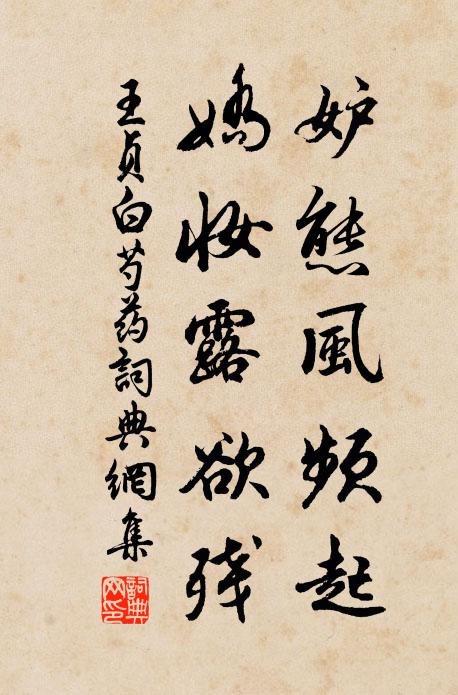 妒態風頻起
嬌妝露欲殘
王貞白芍药詞典網集
詞典网印